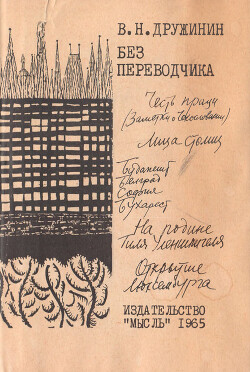 В.Н. ДРУЖИНИН
БЕЗ
ПЕРЕВОДЧИКА
Честь праци
(Заметки о Чехословакии)
Лица столиц
Будапешт
Белград
София
Бухарест
На родине
Тиля Уленшпигеля
Открытие
Люксембурга
ИЗДАТЕЛЬСТВО
"МЫСЛЬ" 1965